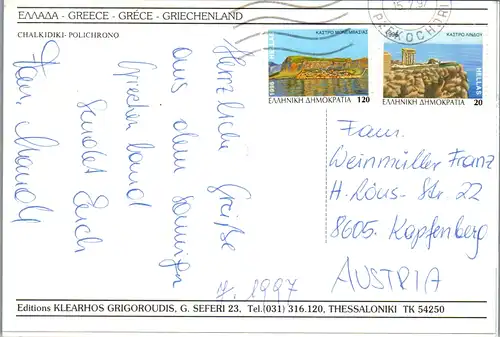 ΕΛΛΑΔΑ - GREECE - GRÉCE - GRIECHENLAND
CHALKIDIKI- POLICHRONO
ΚΑΣΤΡΟ ΜΟΝΕΜΒΑΣΙΑΣ
ΕΛΛΗΝΙΚΗ ΔΗΜΟΚΡΑΤΙΑ 120
ΚΑΣΤΡΟ ΛΙΝΔΟΥ
HELLAS
ΕΛΛΗΝΙΚΗ ΔΗΜΟΚΡΑΤΙΑ 20
Herzliche Grüße
aus dem sonnigen
Griechenland
sendet Euch
Fam.
Fam.
Weinmüller Franz
Str 22
8605. Kapfenberg
AUSTRIA
1997
Editions KLEARHOS GRIGOROUDIS, G. SEFERI 23. Tel.(031) 316.120, THESSALONIKI TK 54250